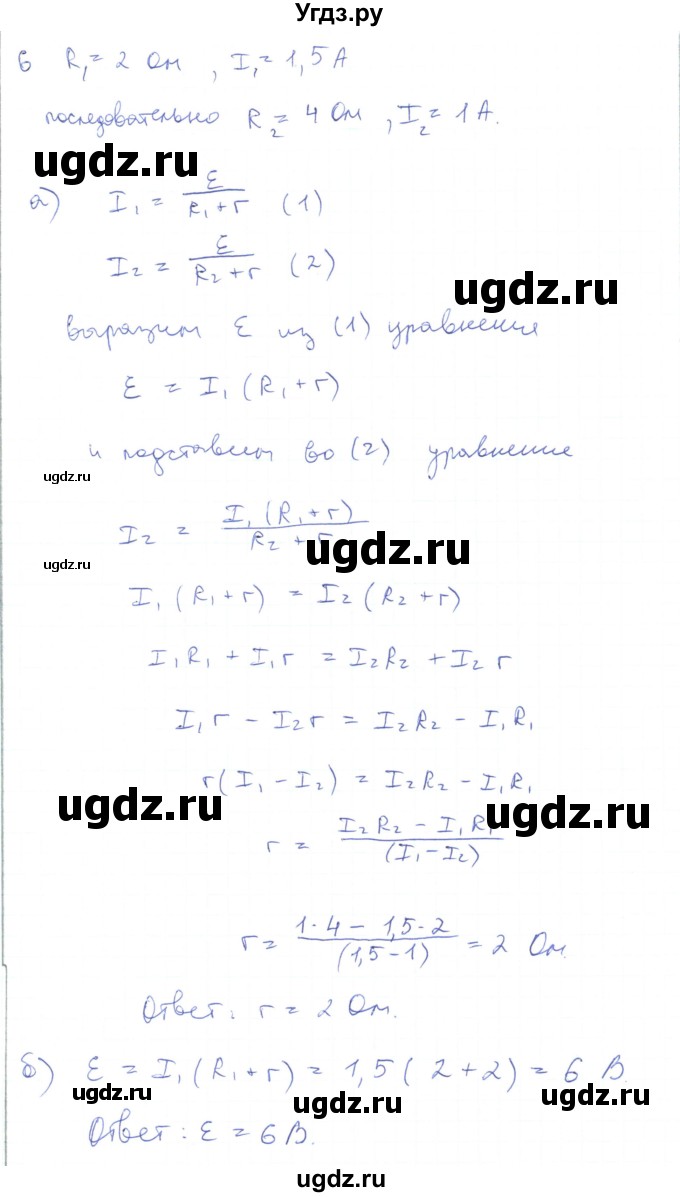 Угдз.ру
6 R₁ = 2 Ом, I₁ = 1,5 А
последовательно R₂ = 4 Ом, I₂ = 1 А.
ugdz.ru
а) I₁ = ε / (R₁ + r) (1)
I₂ = ε / (R₂ + r) (2)
ugdz.ru
выразим ε из (1) уравнения
ε = I₁ (R₁ + r)
и подставим во (2) уравнение
ugdz.ru
I₂ = I₁ (R₁ + r) / R₂ +
ugdz.ru
ugdz.ru
I₁ (R₁ + r) = I₂ (R₂ + r)
I₁R₁ + I₁r = I₂R₂ + I₂r
I₁r - I₂r = I₂R₂ - I₁R₁
r(I₁ - I₂) = I₂R₂ - I₁R₁
ugdz.ru
ugdz.ru
r = I₂R₂ - I₁R₁ / (I₁ - I₂)
r = 1·4 - 1,5·2 / (1,5 - 1) = 2 Ом.
Ответ: r = 2 Ом.
б) ε = I₁ (R₁ + r) = 1,5 (2 + 2) = 6 В.
ugdz.ru
ugdz.ru
ugdz.ru
Ответ: ε = 6 В.
ugdz.ru